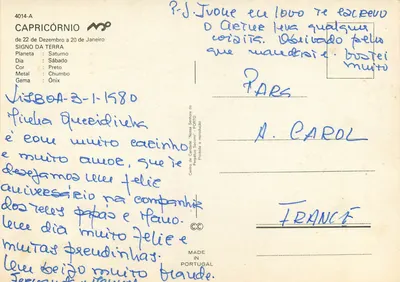 4014-A
CAPRICÓRNIO
de 22 de Dezembro a 20 de Janeiro
SIGNO DA TERRA
Planeta : Saturno
Dia : Sábado
Cor : Preto
Metal : Chumbo
Gema : Ónix
LISBOA-3-1-1980
Minha Queridinha
é com muito carinho
e muito amor, que te
desejamos um feliz
aniversário na companhia
dos teus papás e Mano.
Um dia muito feliz e
muitas prendinhas.
Um beijo muito grande.
P.S. Ivone eu logo te escrevo
o Artur leva qualquer
coisita. Obrigado pelo
que mandaste. Gostei
muito
PARA
A. CAROL
FRANCE
MADE
IN
PORTUGAL